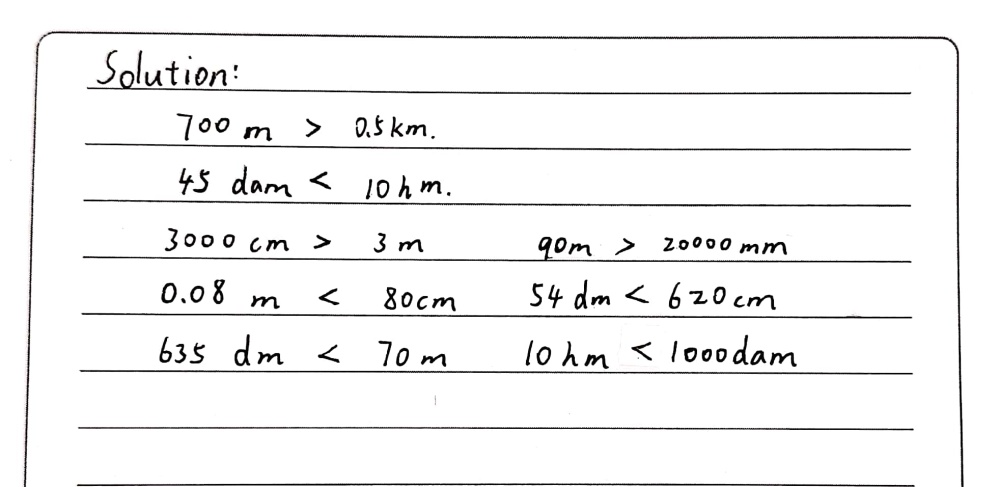 Solution:
700 m > 0.5km.
45 dam < 10hm.
3000 cm > 3 m 90m > 20000 mm
0.08 m < 80cm 54 dm < 620cm
635 dm < 70 m 10 hm < 1000dam